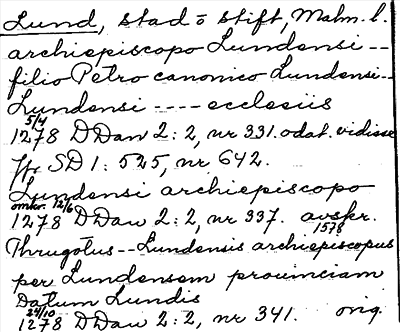 Lund, stad o stift, Malm. l.
archiepiscopo Lundensi --
filio Petro canonico Lundensi--
Lundensi ---- ecclesiis
5/4
1278 DDan 2:2, nr 331. odat. vidisse
Jfr SD 1: 525, nr 642.
Lundensi archiepiscopo
omkr. 12/6
1278 DDan 2:2, nr 337. avskr.
1578
Thrugotus -- Lundensis archiepiscopus
per Lundensem prouinciam
Datum Lundis
24/10
1278 DDan 2:2, nr 341. orig.